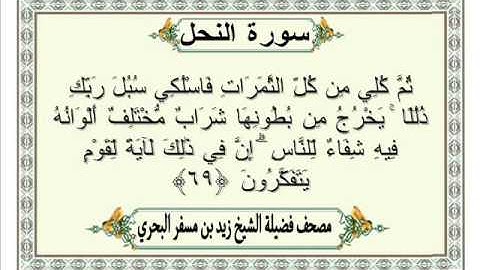 سورة النحل
ثُمَّ كُلِي مِن كُلِّ الثَّمَرَاتِ فَاسْلُكِي سُبُلَ رَبِّكِ
ذُلُلًا ۚ يَخْرُجُ مِن بُطُونِهَا شَرَابٌ مُّخْتَلِفٌ أَلْوَانُهُ
فِيهِ شِفَاءٌ لِّلنَّاسِ ۗ إِنَّ فِي ذَٰلِكَ لَآيَةً لِّقَوْمٍ
يَتَفَكَّرُونَ ﴿٦٩﴾
مصحف فضيلة الشيخ زيد بن مسفر البحري